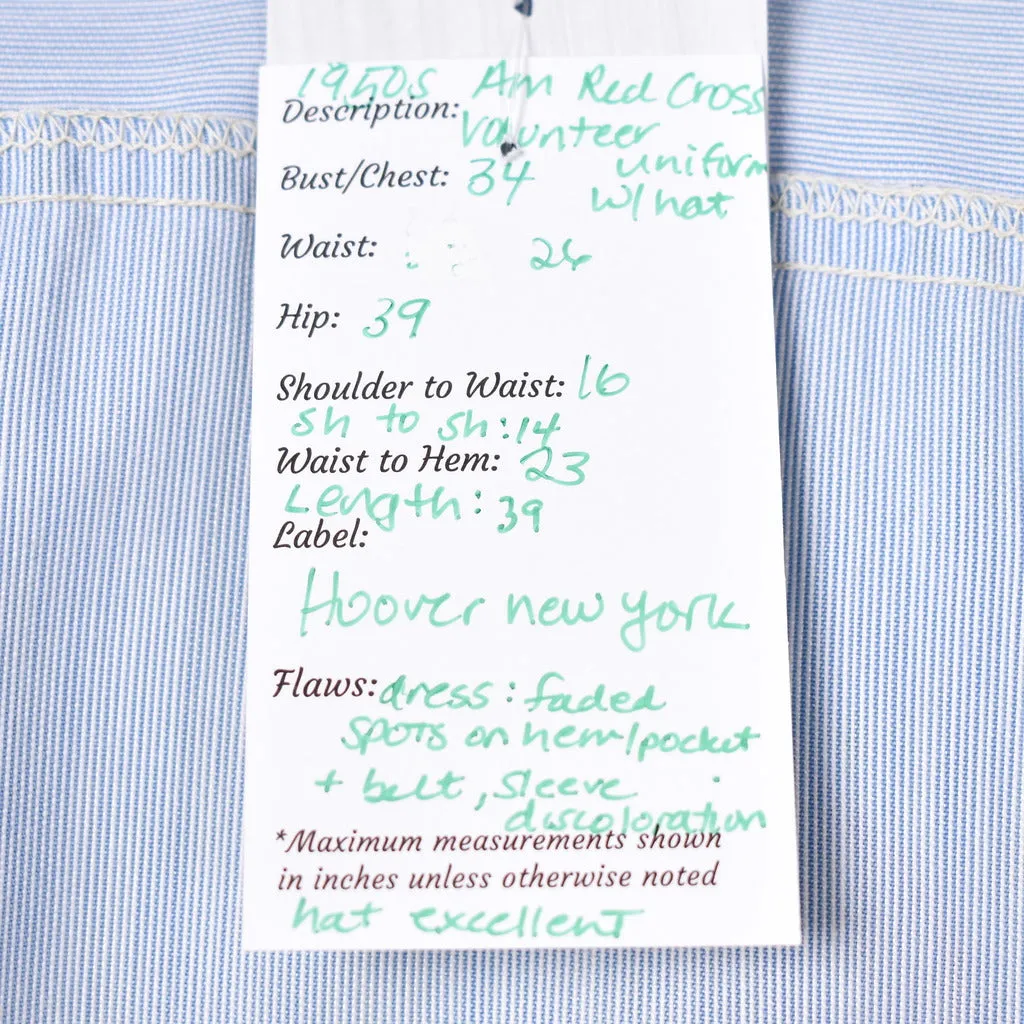 1950s Am Red Cross
Description:
Volunteer
uniform
Bust/Chest: 34
w/ hat
Waist: 26
Hip: 39
Shoulder to Waist: 16
sh to sh: 14
Waist to Hem: 23
Length: 39
Label:
Hoover new york
Flaws: dress: faded
spots on hem/pocket
+ belt, sleeve
discoloration
*Maximum measurements shown
in inches unless otherwise noted
hat excellent